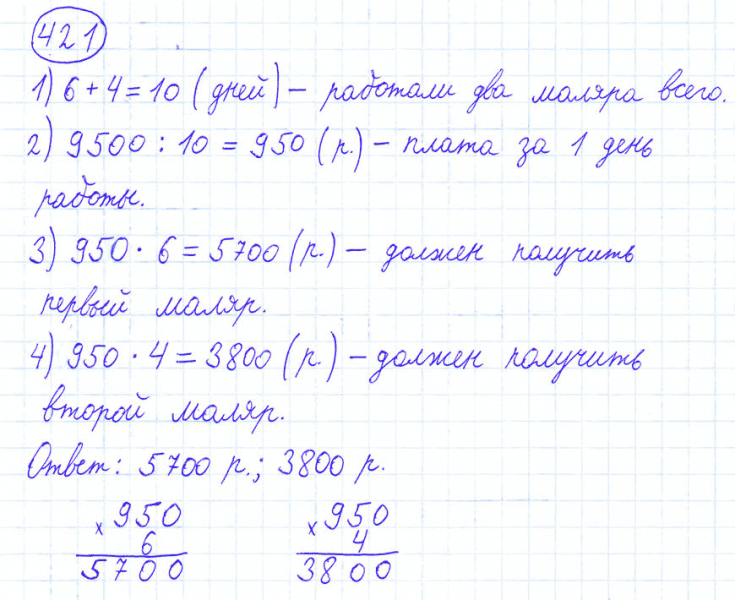 421
1) 6 + 4 = 10 (дней) – работали два маляра всего.
2) 9500 : 10 = 950 (р.) – плата за 1 день
работы.
3) 950 · 6 = 5700 (р.) – должен получить
первый маляр.
4) 950 · 4 = 3800 (р.) – должен получить
второй маляр.
Ответ: 5700 р.; 3800 р.
x 950 x 950
6 4
5700 3800